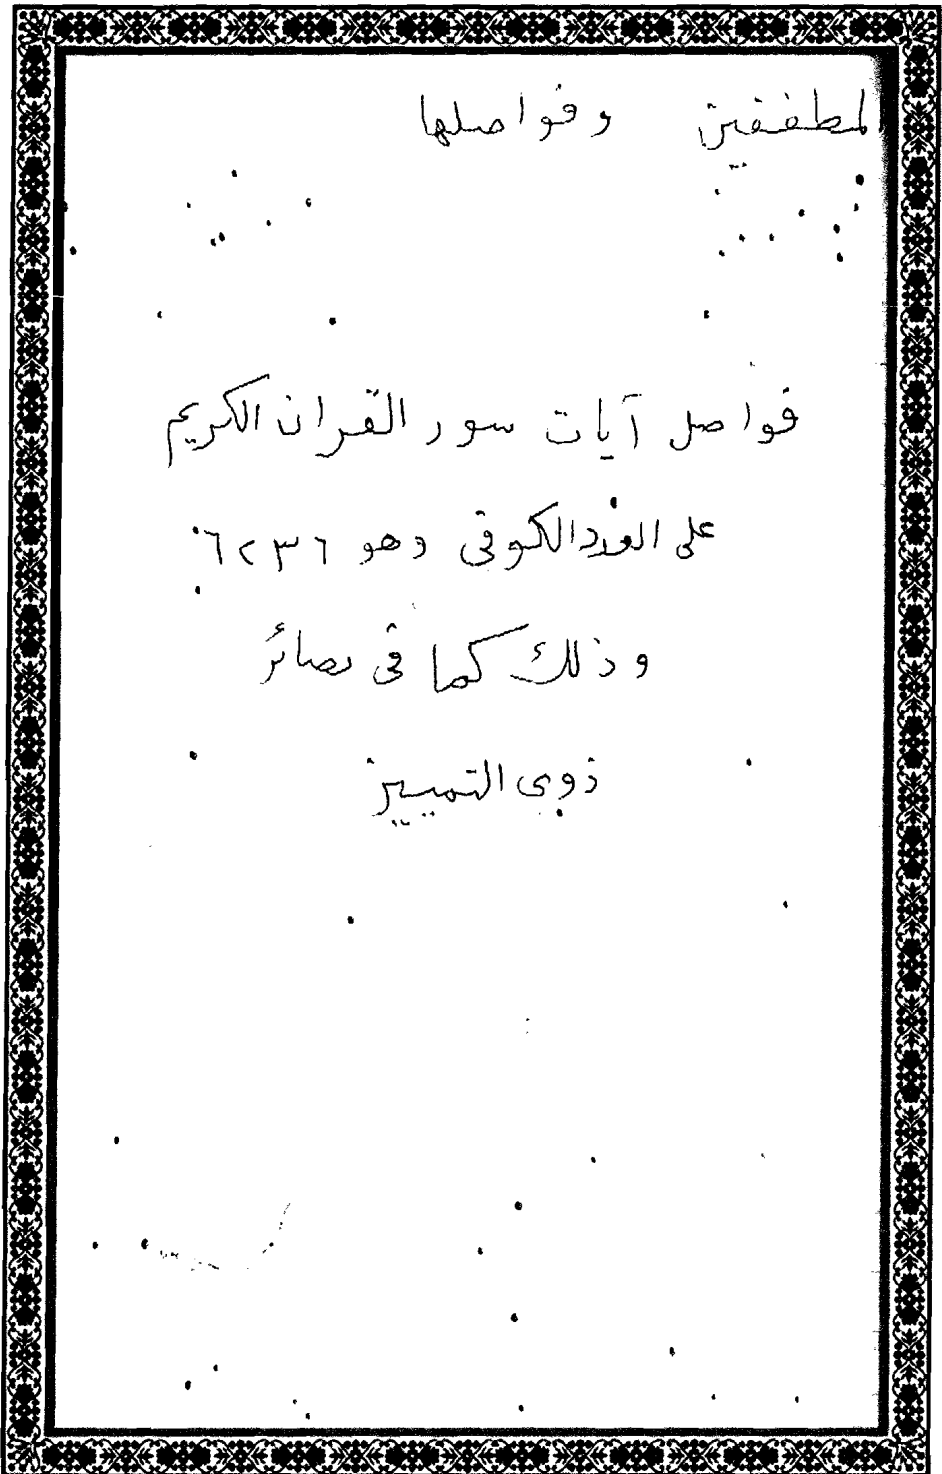 لمطففين وفواصلها
فواصل آيات سور القران الكريم
على العدد الكوفى وهو ٦٢٣٦
وذلك كما فى بصائر
ذوى التمييز